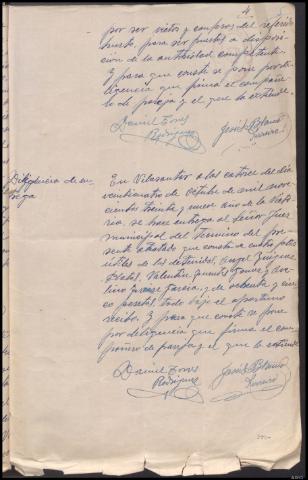 4
por ser vistos y compros del referido
hurto, para ser puestos a disposi-
cion de la autoridad competente.
Y para que conste se pone por di-
ligencia que firma el compañe-
ro de pareja y el que lo extiende.
Daniel Torres
Rodriguez
José Blanco
Diligencia de en-
trega
En Vilasantar a las catorce del dia
veinticuatro de Octubre de mil nove-
cientos treinta y nueve año de la Victo-
ria, se hace entrega al Señor Juez
municipal del Termino del pre-
sente atestado que consta de cuatro folios
utiles de los detenidos, Angel
Valentin Gomez y
Garcia, y de ochenta y cin-
co pesetas todo bajo el oportuno
recibo. Y para que conste se pone
por diligencia que firma el com-
pañero de pareja y el que lo extiende.
Daniel Torres
Rodriguez
José Blanco